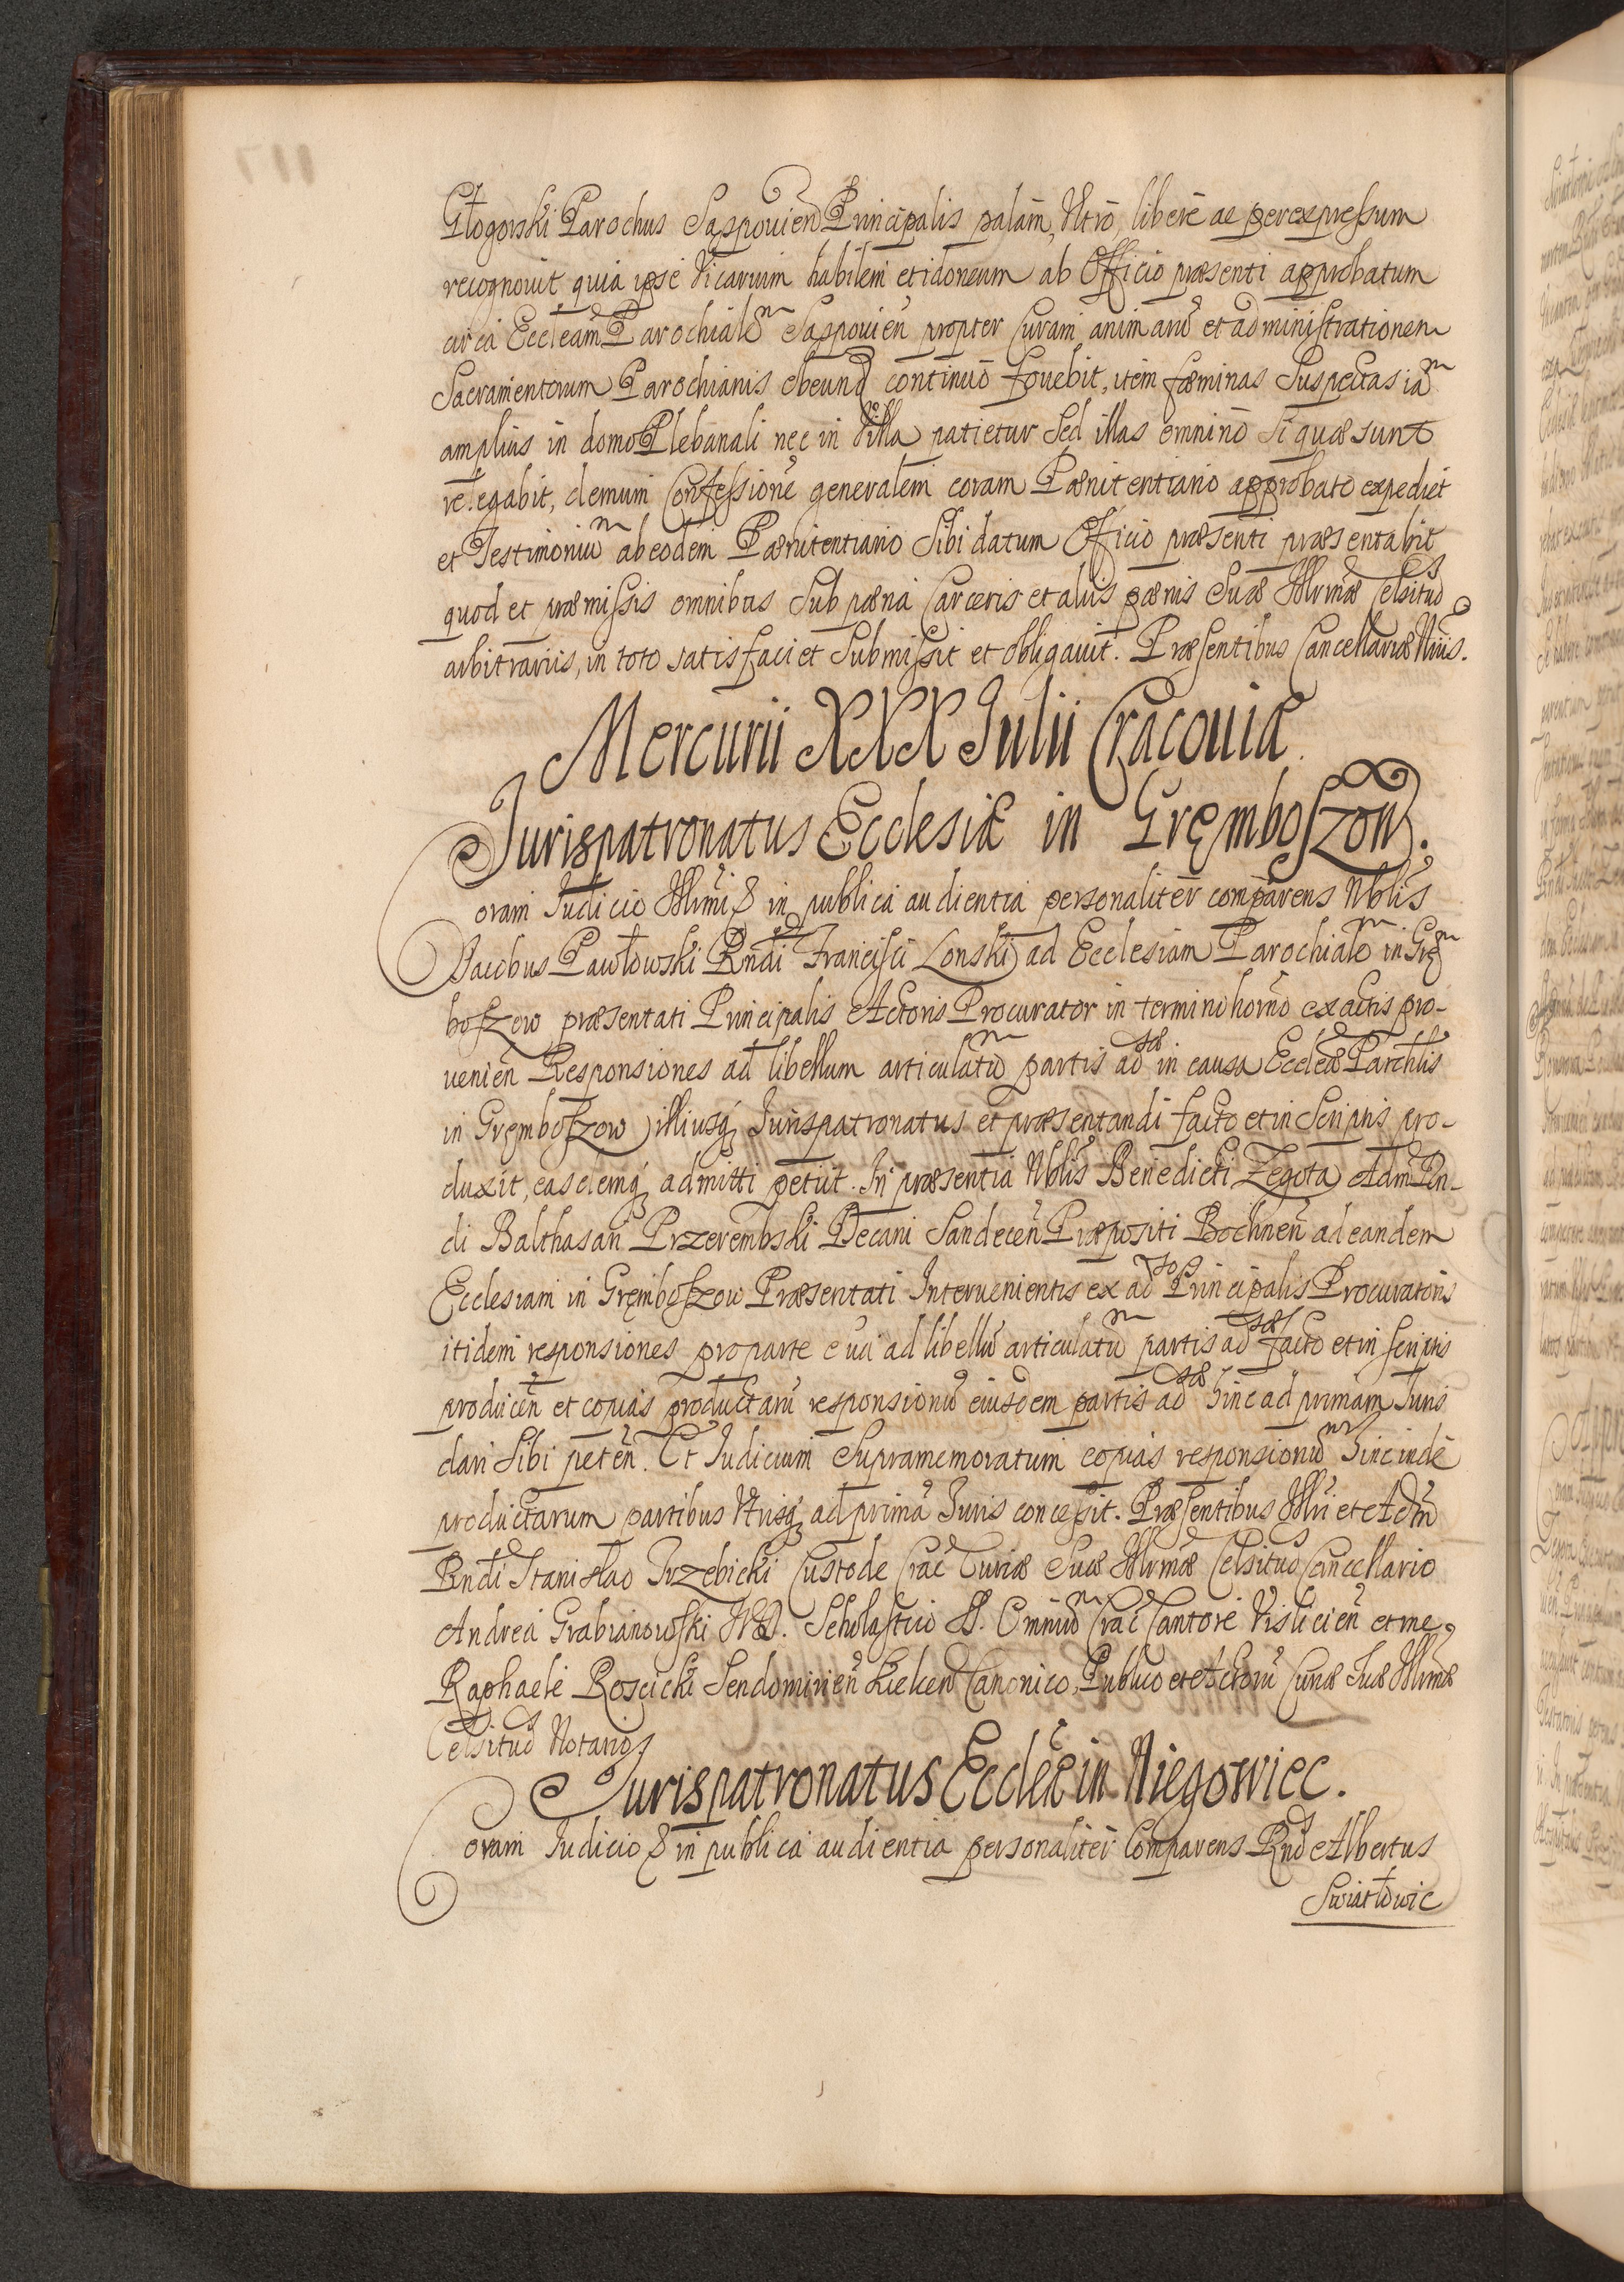 Głogoski Parochus Saspouień Principalis palam, Vltrò, liberè ac per expressum
recognouit quia ipse Vicarium habilem et idoneum ab Officio præsenti approbatum
circa Eccleam Parochiale͂m Saspouień propter Curam animarũ et administrationem
Sacramentorum Parochianis obeund continuò fouebit, item fæminas Suspectas iãm
amplius in domo Plebanali nec in Villa patietur Sed illas omninò Si quæ sunt
relegabit, demum Confessionẽ generalem coram Pænitentiario approbato expediet
et Testimoniũm ab eodem Pænitentiario Sibi datum Officio præsenti præsentabit
quod et præmissis omnibus Sub pæna Carceris et alijs pænis Suæ Illrmæ Celsitud
arbitrarijs, in toto satisfaciet Submissit et obligauit. Præsentibus Cancellariæ Nrijs.
Mercurii XXX Iulii Cracouiæ.
Iurispatronatus Ecclesiæ in Gręmboszow.
Coram Iudicio Illrmi & in publica audientia personaliter comparens Nblis
Iacobus Pawłowski Rndi Francisci Lonski ad Ecclesiam Parochialẽm in Gręm
boszow præsentati Principalis Actoris Procurator in termino horno ex actis pro-
uenień Responsiones ad libellum articulatũm partis adsæ in causa Eccleæ Parchlis
in Gręmboszow illiusq Iurispatronatus et præsentandi facto et in Scriptis pro-
duxit, easdemq admitti petijt. In præsentia Nblis Benedicti Zegota Adm Rn-
di Balthasari Przerembski Decani Sandeceń Præpositi Bochneń ad eandem
Ecclesiam in Gręmboszow Præsentati Interuenientis ex adso Principalis Procuratoris
itidem responsiones pro parte sua ad libellũ articulatũm partis adsæ facto et in scriptis
producẽń et copias productarũ responsionũ eiusdem partis adsæ hinc ad primam Iuris
dari Sibi peteń. Et Iudicium Supramemoratum copias responsionũm hinc inde
productarum partibus Vtrisq ad primã Iuris concessit. Præsentibus Illri et Adm
Rndi Stanislao Trzebicki Custode Crac Curiæ Suæ Illrmæ Celsitud Cancellario
Andrea Grabianowski IVD. Scholastico SS. Omniũm Crac Cantore Vislicień et me,
Raphaele Roscicki Sendomirień Kielceń Canonico, Publico et Actorũ Curiæ Suæ Illrmæ
Celsitud Notario.
Iurispatronatus Eccleæ in Niegowiec.
Coram Iudicio & in publica audientia personaliter Comparens Rnd Albertus
Swiatłowic